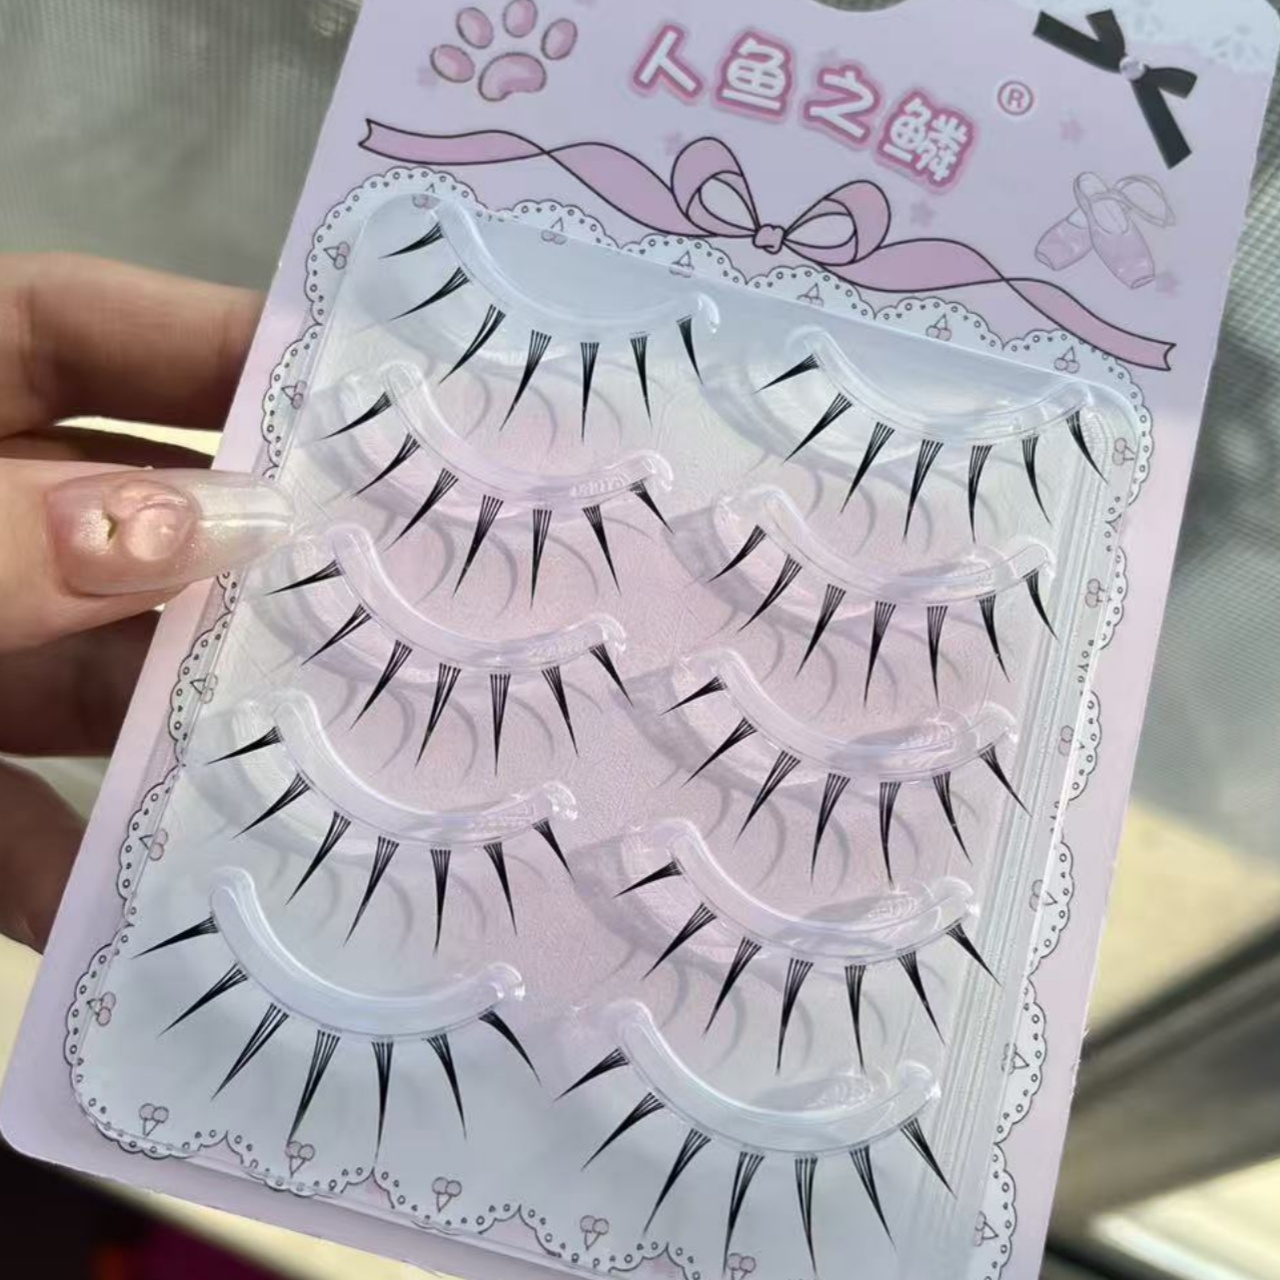 人鱼之鳞®